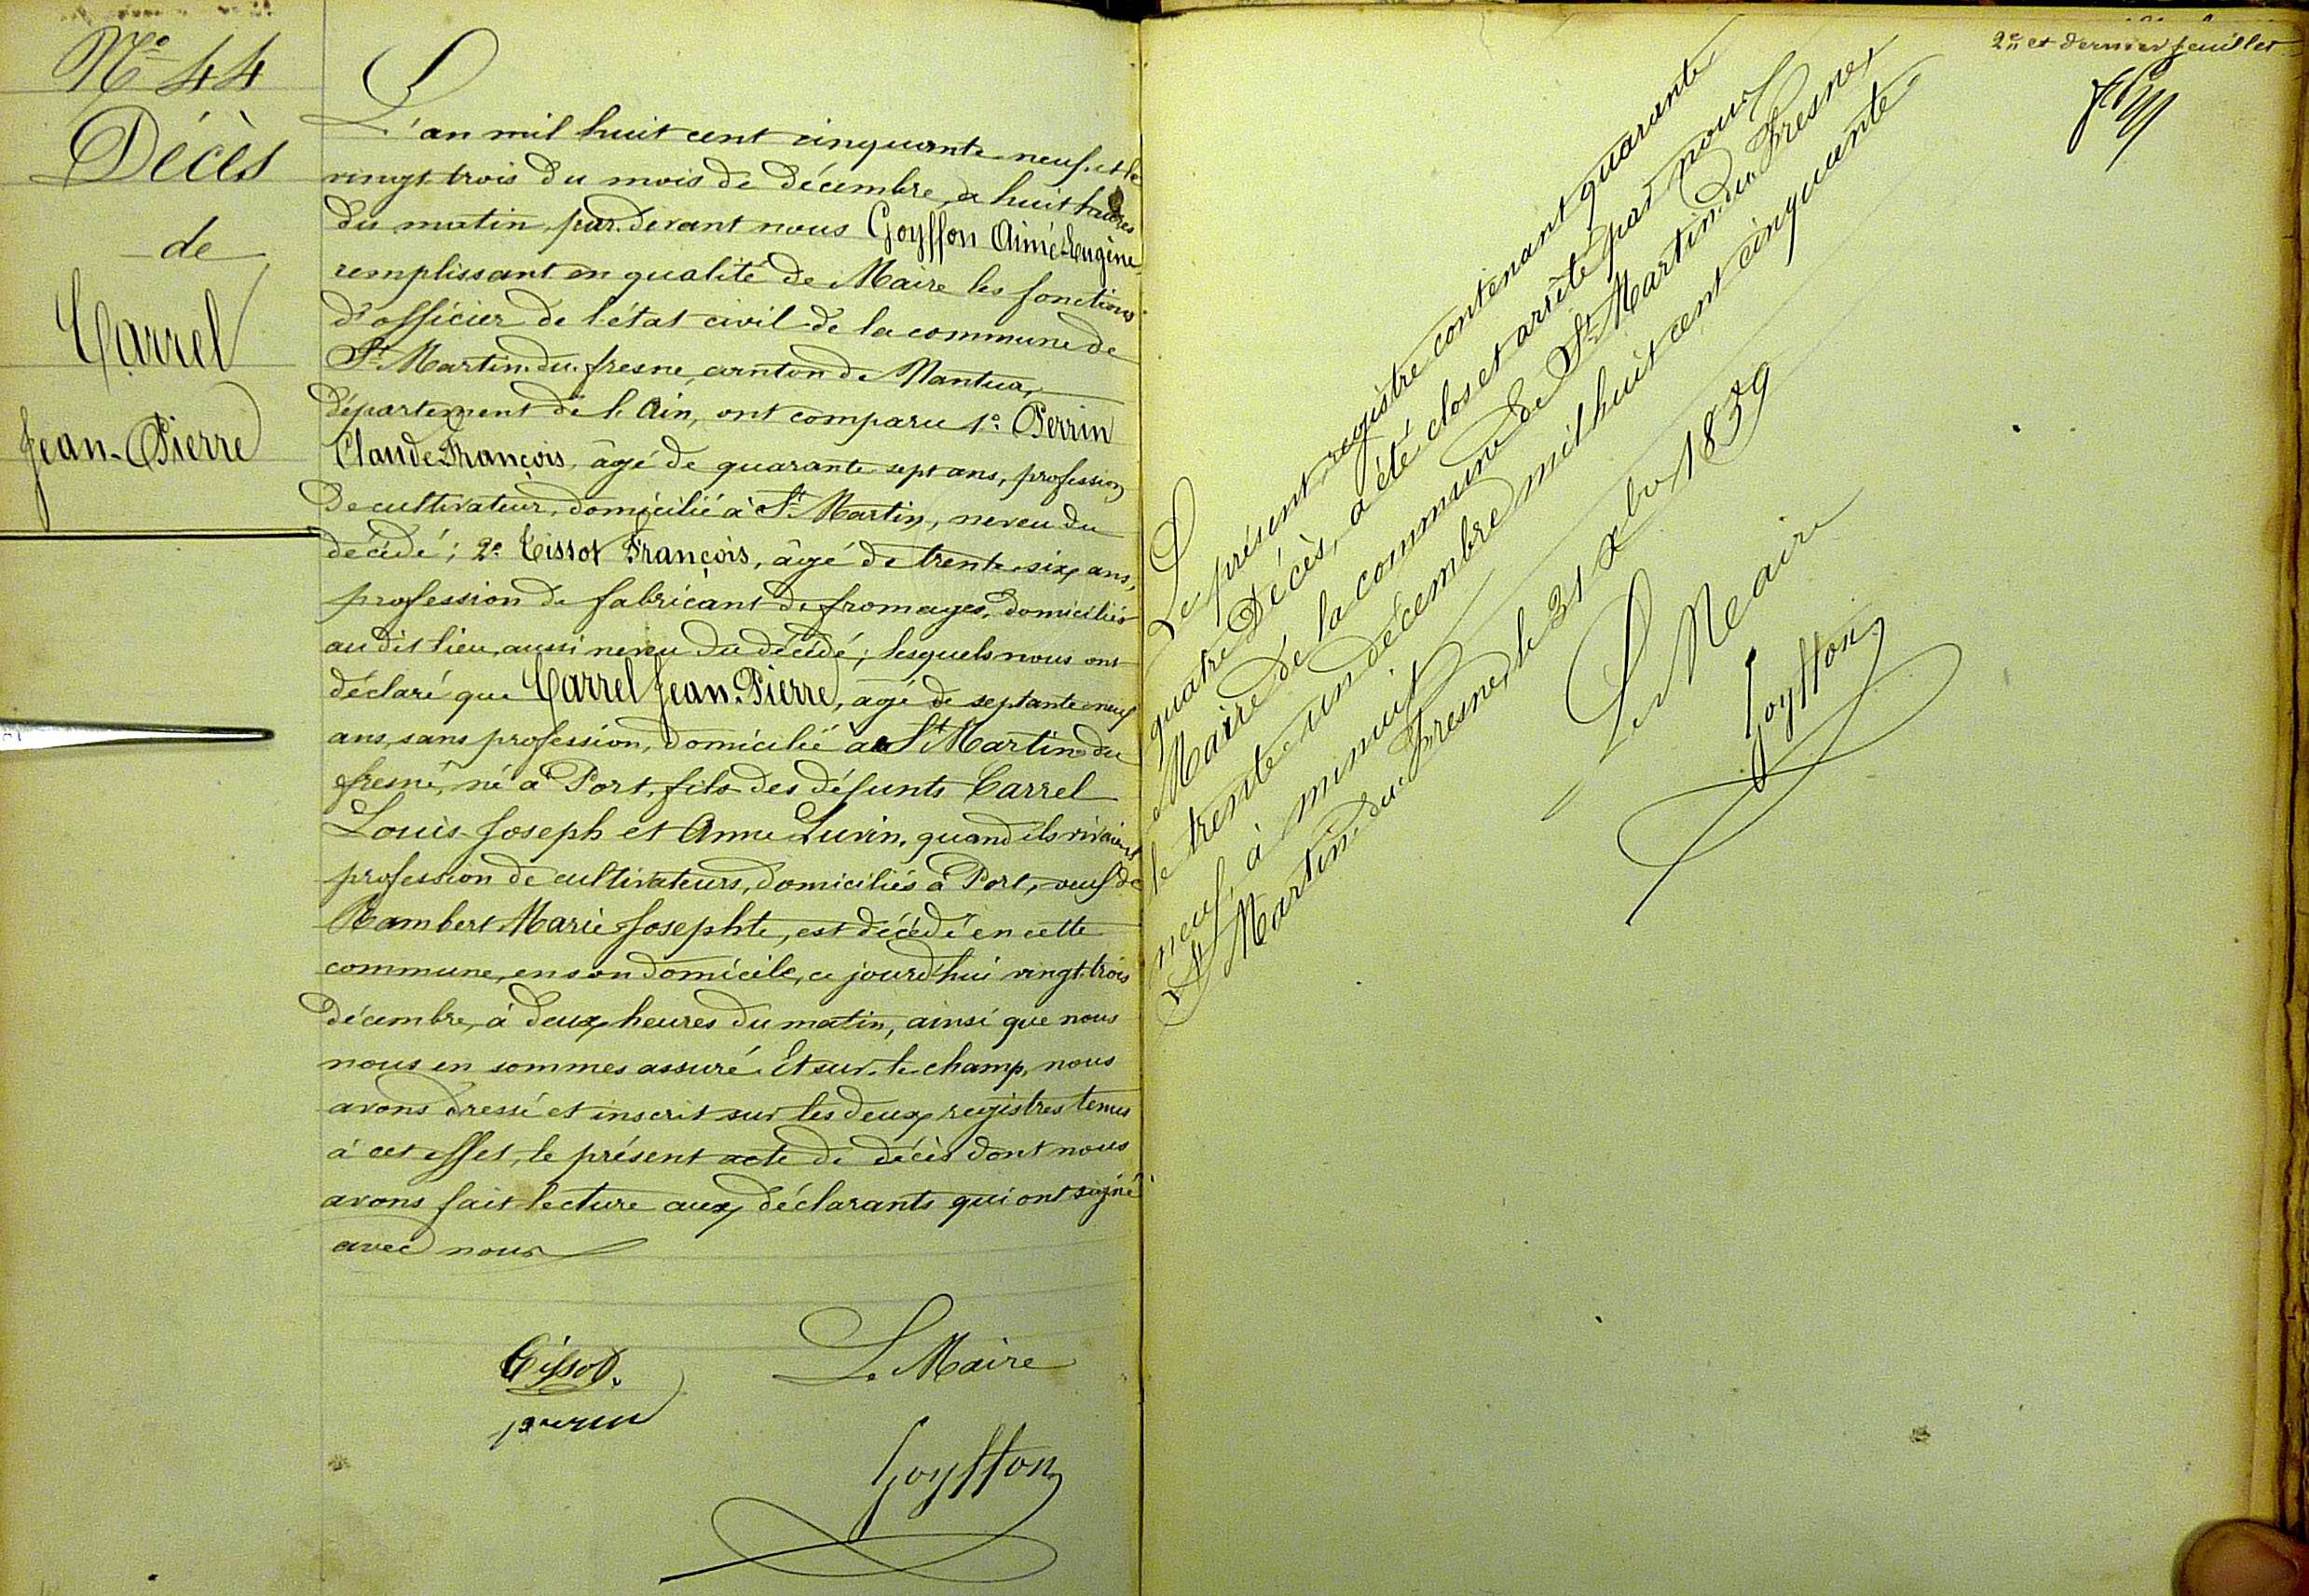 N° 44
Décès
de
Carrel
Jean-Pierre
L'an mil huit cent cinquante neuf, et le
vingt trois du mois de décembre, à huit heures
du matin, par devant nous Goyffon Aimé Eugène
remplissant en qualité de Maire les fonctions
d'officier de l'état civil de la commune de
St Martin-du-fresne, canton de Nantua,
département de l'Ain, ont comparu 1° Perrin
Claude François, âgé de quarante sept ans, profession
de cultivateur, domicilié à St Martin, neveu du
décédé; 2° Tissot François, âgé de trente-six ans,
profession de fabricant de fromages, domiciliés
au dit lieu, aussi neveu du décédé; lesquels nous ont
déclaré que Carrel Jean-Pierre, âgé de septante neuf
ans, sans profession, domicilié à St Martin du
fresne, né à Port, fils des défunts Carrel
Louis-Joseph et Anne Luvin, quand ils vivaient
profession de cultivateurs, domiciliés à Port, veuf de
Rambert Marie Josephte, est décédé en cette
commune, en son domicile, ce jourd'hui vingt-trois
décembre, à deux heures du matin, ainsi que nous
nous en sommes assuré. Et sur-le-champ, nous
avons dressé et inscrit sur les deux registres tenus
à cet effet, le présent acte de décès dont nous
avons fait lecture aux déclarants qui ont signé
avec nous
Tissot.
perrin
Le Maire
Goyffon
2e et dernier feuillet
Le présent registre contenant quarante
quatre Décès, a été clos et arrêté par nous
Maire de la commune de St Martin-du-Fresne,
le trente-un décembre mil huit cent cinquante
neuf, à minuit
St Martin-du-Fresne, le 31 xbre 1859
Le Maire
Goyffon